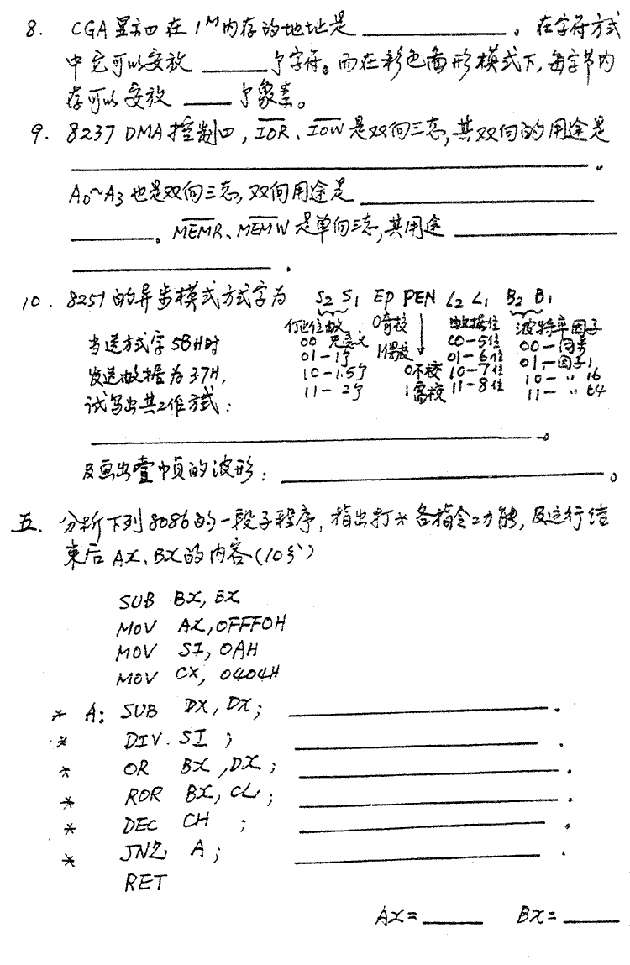 8. CGA显示口在1ᴹ内存的地址是____________。在字符方式
中它可以安放______个字符。而在彩色图形模式下,每字节内
存可以安放____个象素。
9. 8237 DMA控制口, I̅O̅R̅、I̅O̅W̅是双向三态,其双向的用途是
____________________________________________。
A₀~A₃也是双向三态,双向用途是____________________
________。M̅E̅M̅R̅、M̅E̅M̅W̅是单向三态,其用途______________
__________________.
10. 8251的异步模式方式字为 S₂ S₁ EP PEN L₂ L₁ B₂ B₁
停止位数 0奇校 数据位 波特率因子
当送方式字5BH时 00 无意义 1偶校 00-5位 00-同步
01-1个 01-6位 01-因子1
发送数据为37H, 10-1.5个 0不校 10-7位 10- 〃 16
试写出其工作方式: 11-2个 1需校 11-8位 11- 〃 64
____________________________________________。
及画出壹帧的波形:______________________________。
五. 分析下列8086的一段子程序,指出打*各指令功能,及运行结
束后AX、BX的内容(10分)
SUB BX, BX
MOV AX, 0FFF0H
MOV SI, 0AH
MOV CX, 0404H
* A: SUB DX, DX; ____________________.
* DIV. SI ; ____________________.
* OR BX, DX; ____________________.
* ROR BX, CL; ____________________.
* DEC CH ; ____________________.
* JNZ A; ____________________.
RET
AX=______ BX=______